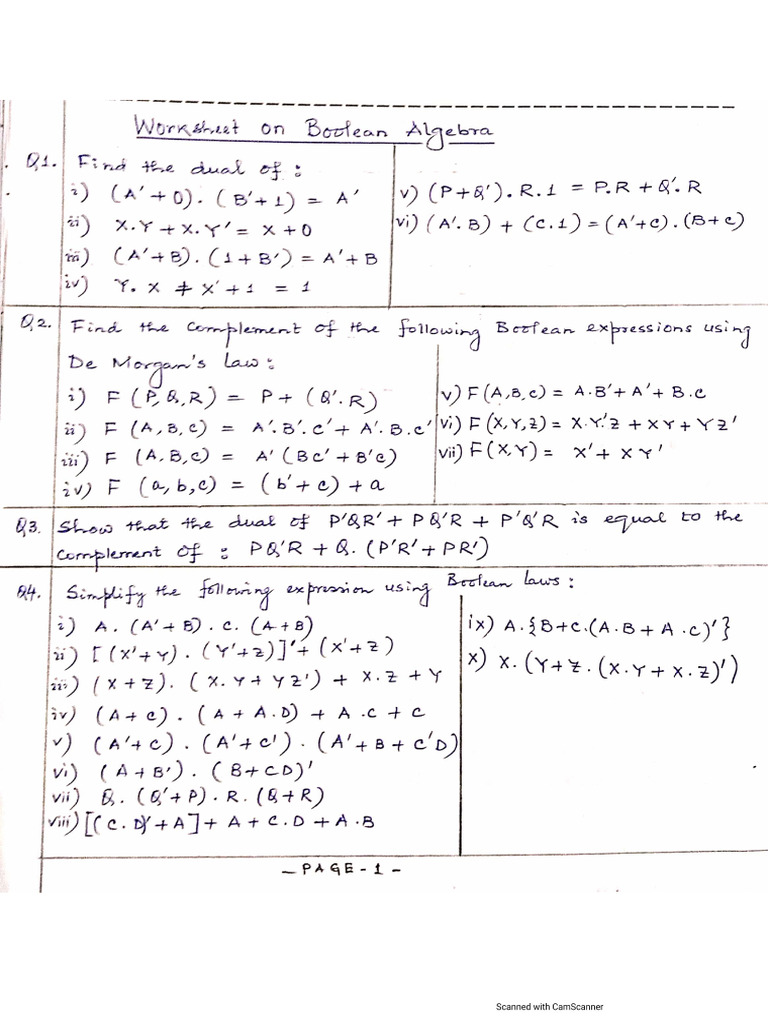 Worksheet on Boolean Algebra
Q1. Find the dual of :
i) (A' + 0) . (B' + 1) = A'
ii) X.Y + X.Y' = X + 0
iii) (A' + B) . (1 + B') = A' + B
iv) Y. X ≠ X' + 1 = 1
v) (P + Q') . R . 1 = P.R + Q'. R
vi) (A'. B) + (C . 1) = (A' + C) . (B + C)
Q2. Find the complement of the following Boolean expressions using
De Morgan's Law :
i) F (P, Q, R) = P + (Q'. R)
ii) F (A, B, C) = A'. B'. C' + A'. B. C'
iii) F (A, B, C) = A' (BC' + B'C)
iv) F (a, b, c) = (b' + c) + a
v) F (A, B, C) = A. B' + A' + B. C
vi) F (X, Y, Z) = X. Y'. Z + XY + Y Z'
vii) F (X, Y) = X' + X Y'
Q3. Show that the dual of P'QR' + PQ'R + P'Q'R is equal to the
complement of : PQ'R + Q. (P'R' + PR')
Q4. Simplify the following expression using Boolean laws :
i) A . (A' + B) . C . (A + B)
ii) [(X' + Y) . (Y' + Z)]' + (X' + Z)
iii) (X + Z) . (X. Y + YZ') + X. Z + Y
iv) (A + C) . (A + A. D) + A . C + C
v) (A' + C) . (A' + C') . (A' + B + C'D)
vi) (A + B') . (B + CD)'
vii) Q . (Q' + P) . R . (Q + R)
viii) [(C. D)' + A] + A + C. D + A. B
ix) A. {B + C. (A. B + A . C)'}
x) X. (Y + Z . (X. Y + X. Z)')
- PAGE - 1 -
Scanned with CamScanner